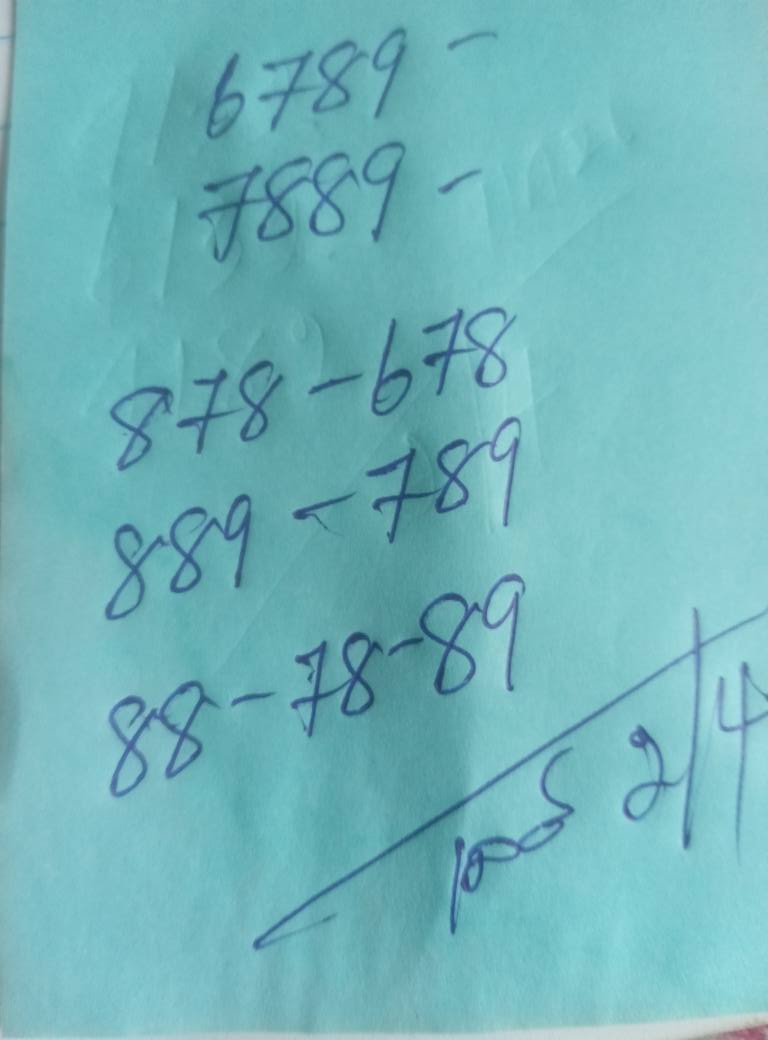 6789 -
7889 -
878 - 678
889 - 789
88 - 78 - 89
2/4